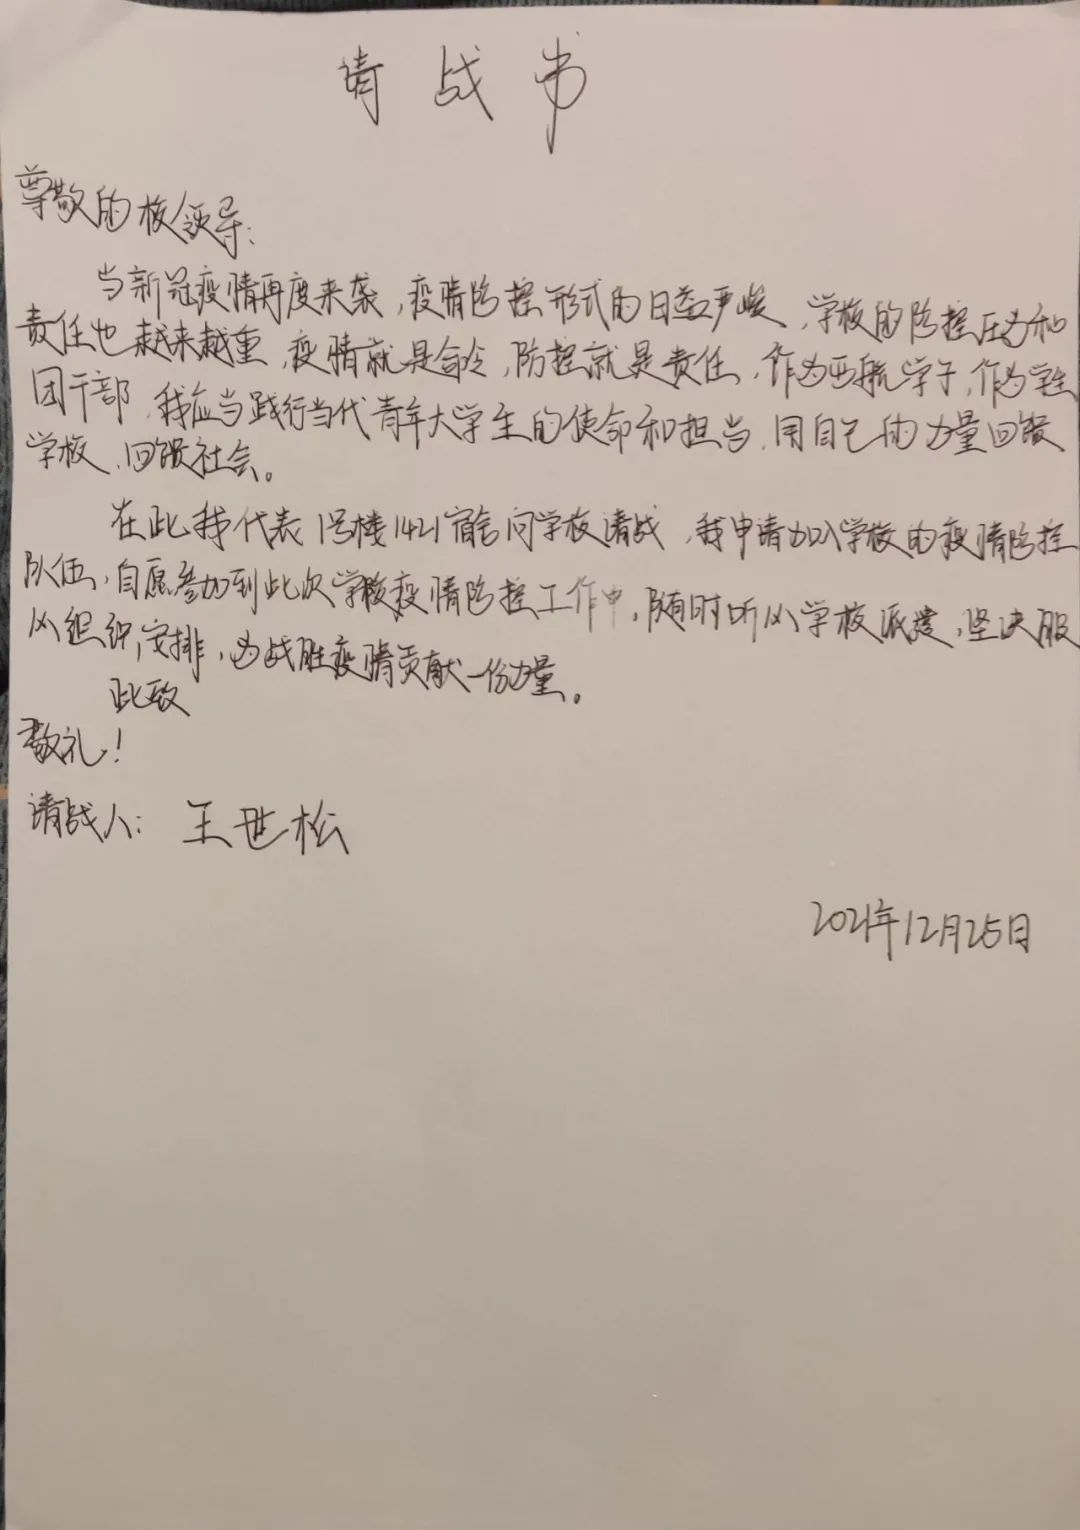 请战书
尊敬的校领导：
当新冠疫情再度来袭，疫情防控形式的日益严峻，学校的防控压力和
责任也越来越重，疫情就是命令，防控就是责任，作为西航学子，作为学生
团干部，我应当践行当代青年大学生的使命和担当，用自己的力量回馈
学校，回馈社会。
在此我代表1号楼1421宿舍向学校请战，我申请加入学校的疫情防控
队伍，自愿参加到此次学校疫情防控工作中，随时听从学校派遣，坚决服
从组织安排，为战胜疫情贡献一份力量。
此致
敬礼！
请战人：王世松
2021年12月25日